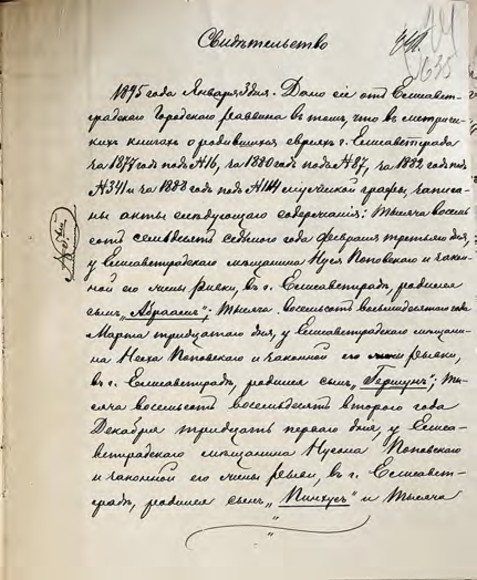 Свидѣтельство
635
1895 года Января 3 дня. Дано сіе отъ Елисавет-
градскаго Городскаго Раввина въ томъ, что въ метриче-
кихъ книгахъ о родившихся евреяхъ г. Елисаветграда
за 1877 годъ подъ №16, за 1880 годъ подъ №87, за 1882 годъ подъ
№341 и за 1888 годъ подъ №114 мужеской графы, записа-
ны акты слѣдующаго содержанія: Тысяча восемь
сотъ семьдесятъ седьмого года февраля третьяго дня,
у Елисаветградскаго мѣщанина Нуся Поповскаго и закон-
ной его жены Ривки, въ г. Елисаветградѣ, родился
сынъ „Абраамъ"; Тысяча восемьсотъ восьмидесятаго года
Марта тридцатаго дня, у Елисаветградскаго мѣщани-
на Поповскаго и законной его жены Рывки,
въ г. Елисаветградѣ, родился сынъ „Гершунъ"; Ты-
сяча восемьсотъ восемьдесятъ второго года
Декабря тридцать перваго дня, у Елиса-
ветградскаго мѣщанина Нусона Поповскаго
и законной его жены Рывки, въ г. Елисавет-
градѣ, родился сынъ „Пинхусъ" и Тысяча